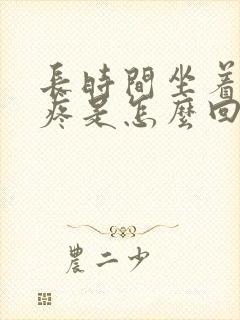 長時間坐着
疼是怎麼回
農二少